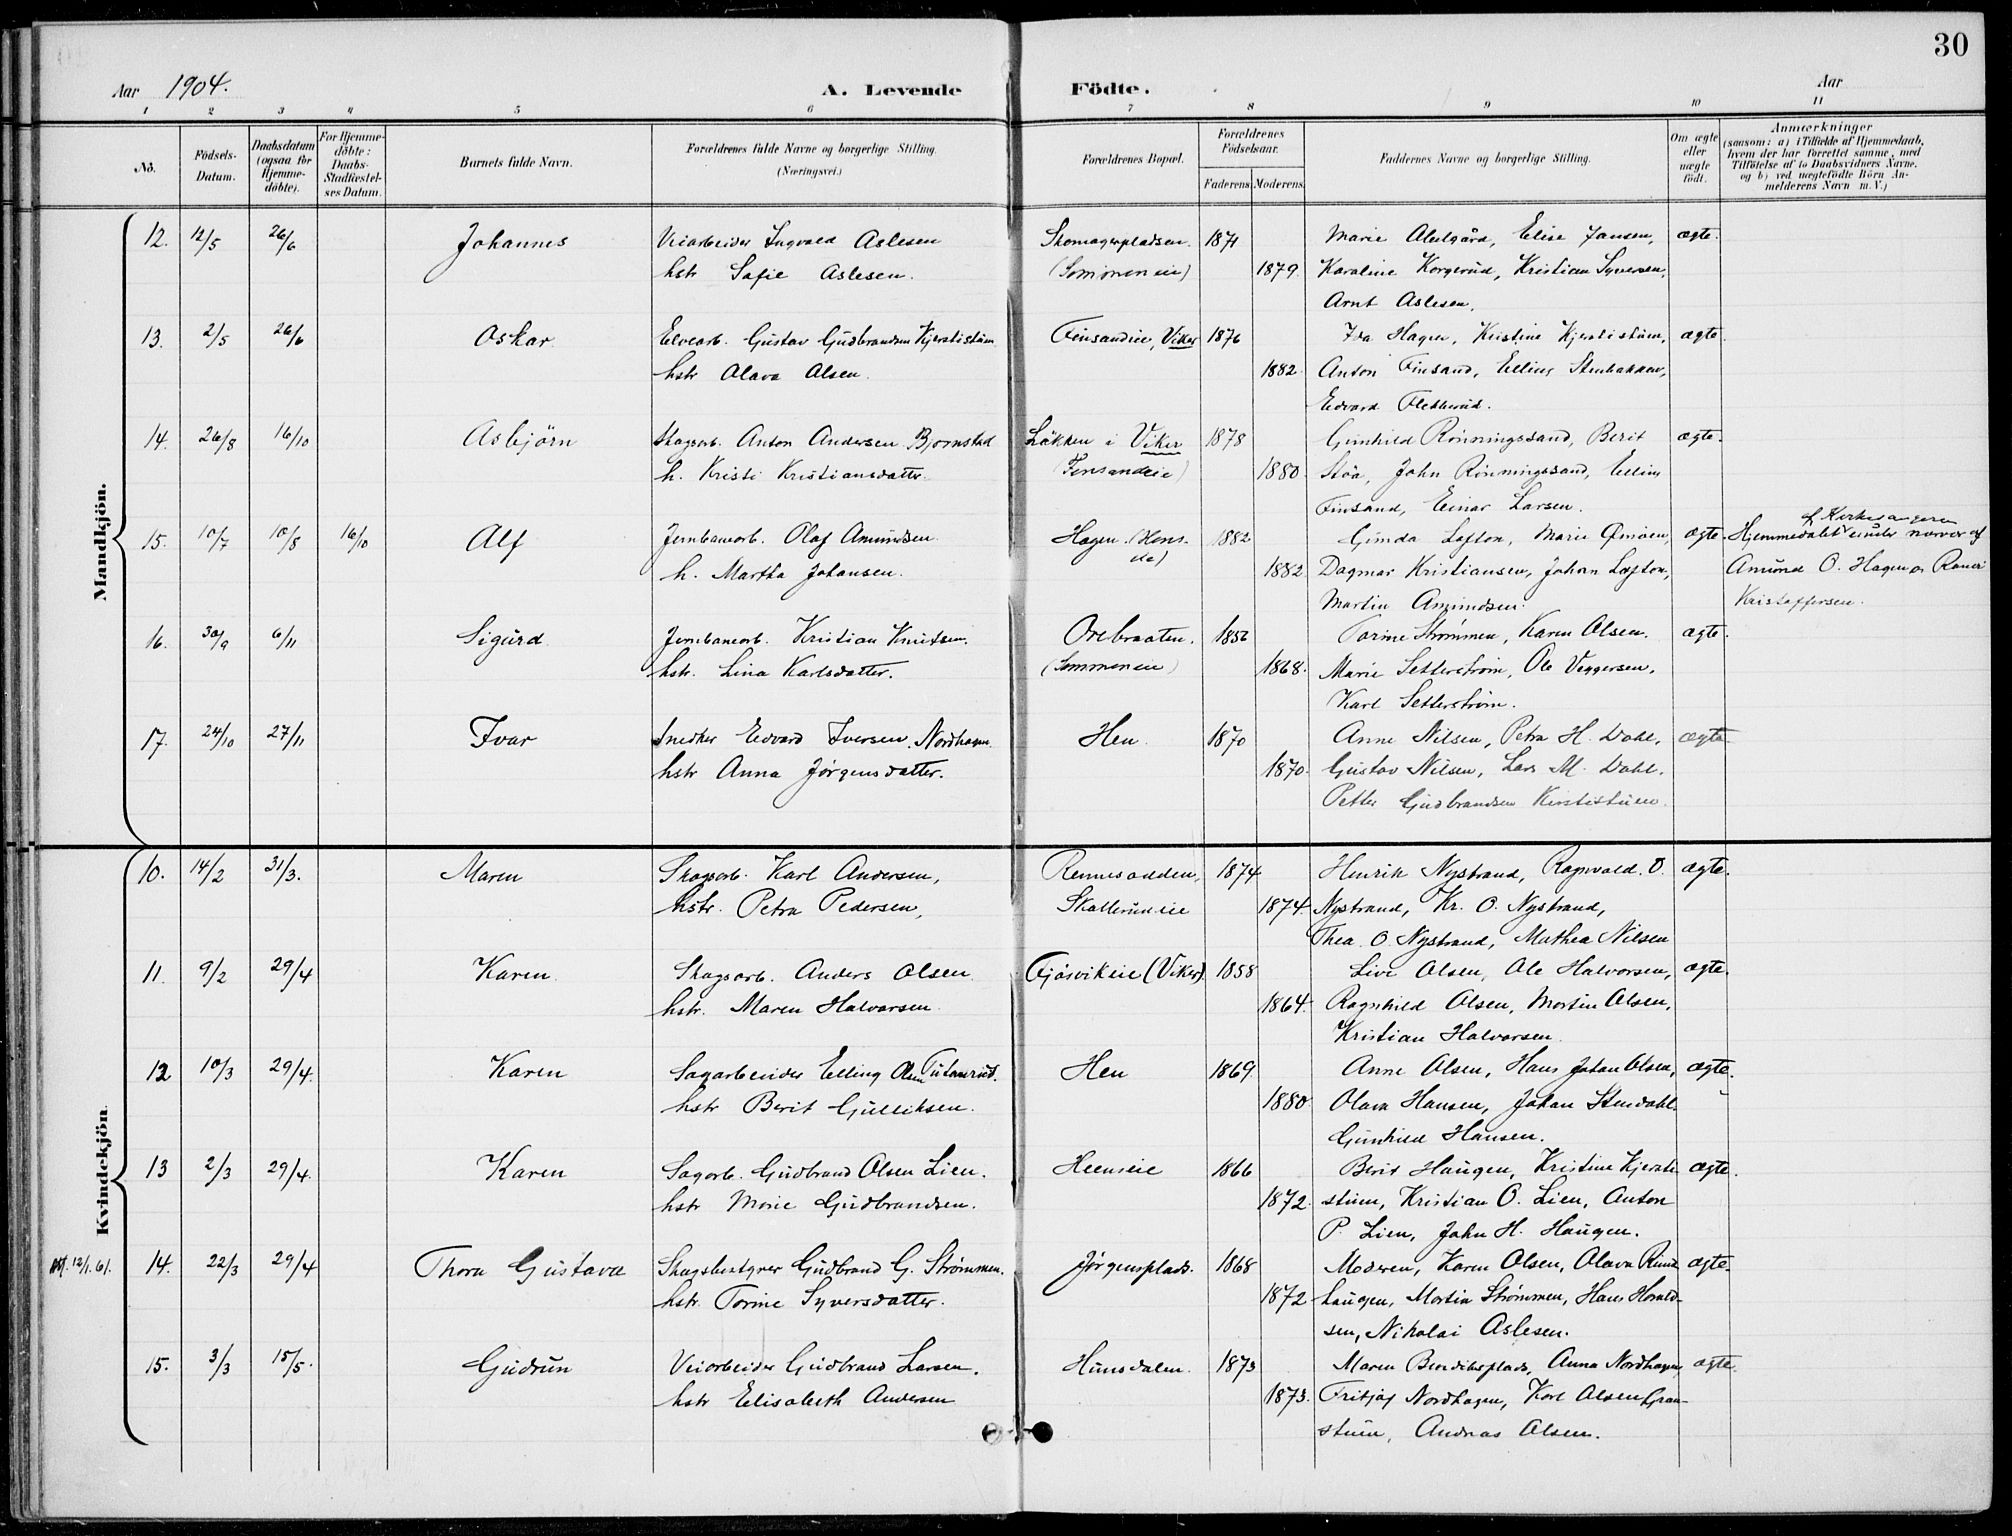 30
Aar 1904.
A. Levende
Födte.
Aar
1 2 3 4 5 6 7 8 9 10 11
No.
Födsels-Datum.
Daabsdatum (ogsaa for Hjemme-döbte).
For Hjemme-döbte: Daabs-Stadfæstel-ses Datum.
Barnets fulde Navn.
Forældrenes fulde Navne og borgerlige Stilling. (Næringsvei.)
Forældrenes Bopæl.
Forældrenes Födselsaar.
Faderens. Moderens.
Faddernes Navne og borgerlige Stilling.
Om ægte eller uægte födt.
Anmærkninger
(saasom: a) i Tilfælde af Hjemmedaab,
hvem der har forrettet samme, med
Tilföielse af to Daabsvidners Navne.
og b) ved uægtefödte Börn An-
melderens Navn m. V.)
Mandkjön.
12. 12/5 26/6 Johannes Veiarbeider Ingvald Aslesen Skomagerpladsen 1871 Marie Alelgård, Elise Jansen, ægte.
hstr Sofie Aslesen. (Sommeneie) 1879. Karoline Korgerud, Kristian Syversen,
Arnt Aslesen.
13. 2/5 26/6 Oskar Elvearb. Gustav Gudbrandsen Kjerstistuen Finsandeie, Viker 1876 Ida Hagen, Kristine Kjerstistuen, ægte.
hstr Olava Olsen. 1882. Anton Finsand, Elling Stenbakken,
Edvard Flekkerud.
14. 26/8 16/10 Asbjörn Skogsarb. Anton Andersen Bjørnstad Løkken i Viker 1878 Gunhild Rønningssand, Berit ægte.
h. Kristi Kristiansdatter. (Finsandeie) 1880. Støa, John Rønningssand, Elling
Finsand, Einar Larsen.
15. 10/7 10/8 16/10 Alf Jernbanearb. Olaf Amundsen Hagen (Hens- 1882 Gunda Lofton, Marie Qmoen, ægte. Hjemmedøbt af Kirkesangeren under nærvær af
h. Martha Johansen. 1882. Dagmar Kristiansen, Johan Lofton, Amund O. Hagen og
Martin Amundsen. Kristoffersen.
16. 30/9 6/11 Sigurd Jernbanearb. Kristian Knutsen. Orebraaten. 1852 Torine Strømmen, Karen Olsen. ægte.
hstr. Lina Karlsdatter. (Sommeneie) 1868. Marie Setterstrøm, Ole Veggersen,
Karl Setterstrøm.
17. 24/10 27/11 Ivar Snedker Edvard Iversen Nordhagen Hen. 1870 Anne Nilsen, Petra H. Dahl, ægte
hstr Anna Jørgensdatter. 1870. Gustav Nilsen, Lars M. Dahl.
Petter Gudbrandsen Kirstistuen.
Kvindekjön.
10. 14/2 31/3. Maren Skogsarb. Karl Andersen, Rennesodden, 1874 Henrik Nystrand, Ragnvald. O. ægte.
hstr. Petra Pedersen, Skollerudeie 1874. Nystrand, Kr. O. Nystrand,
Thea O. Nystrand, Mathea Nilsen
11. 9/2 29/4 Karen. Skogsarb. Anders Olsen Gjøsvikeie (Viker) 1858 Live Olsen, Ole Halvorsen, ægte.
hstr. Maren Halvorsen. 1864. Ragnhild Olsen, Morten Olsen,
Kristian Halvorsen.
12 10/3 29/4. Karen Sagarbeider Elling Olsen Tutanrud. Hen 1869 Anne Olsen, Hans Johan Olsen, ægte.
hstr Berit Gulliksen. 1880. Olava Hansen, Johan Stendahl.
Gunhild Hansen.
13 2/3 29/4. Karen Sagarb. Gudbrand Olsen Lien. Henseie 1866 Berit Haugen, Kristine Kjersti- ægte.
hstr Marie Gudbrandsen. 1872. stuen, Kristian O. Lien, Anton
P. Lien, John H. Haugen.
att. 12/1. 61. 14. 22/3 29/4 Thora Gustava Skogsbestyrer Gudbrand G. Strømmen. Jørgensplads. 1868 Moderen, Karen Olsen, Olava Rund- ægte.
hstr. Torine Syversdatter. 1872 haugen, Martin Strømmen, Hans Harald-
sen, Nikolai Aslesen.
15. 3/3 15/5. Gudrun Veiarbeider Gudbrand Larsen. Hunsdalen 1873 Maren Bendiksplads, Anna Nordhagen, ægte.
hstr Elisabeth Andersen 1873. Fritjof Nordhagen, Karl Olsen Gran-
stuen, Andreas Olsen.